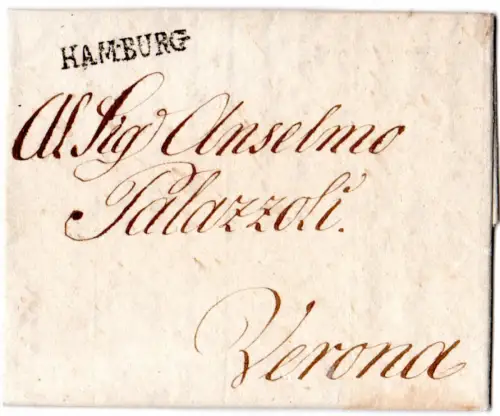 HAMBURG
Al Sig.r Anselmo
Palazzoli.
Verona